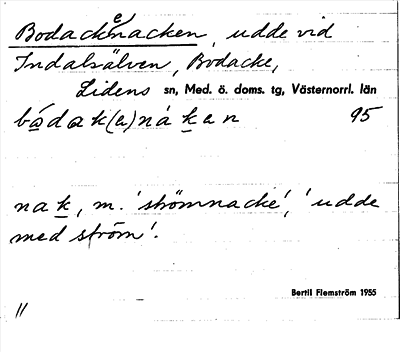 Bodackenacken, udde vid
Indalsälven, Bodacke,
Lidens sn, Med. ö. doms. tg, Västernorrl. län
bódak(a)nákan 95
nak, m. 'strömnacke', 'udde
med ström'.
Bertil Flemström 1955
11